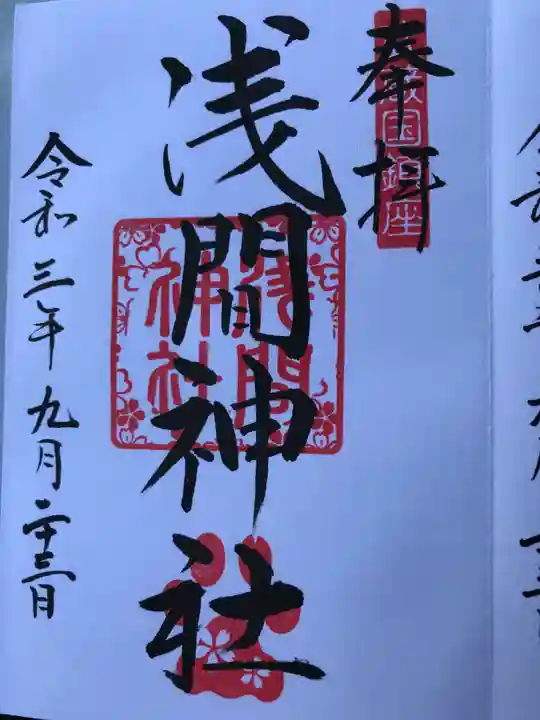 奉拝
國銀座
浅間神社
浅間
神社
令和三年九月二十三日